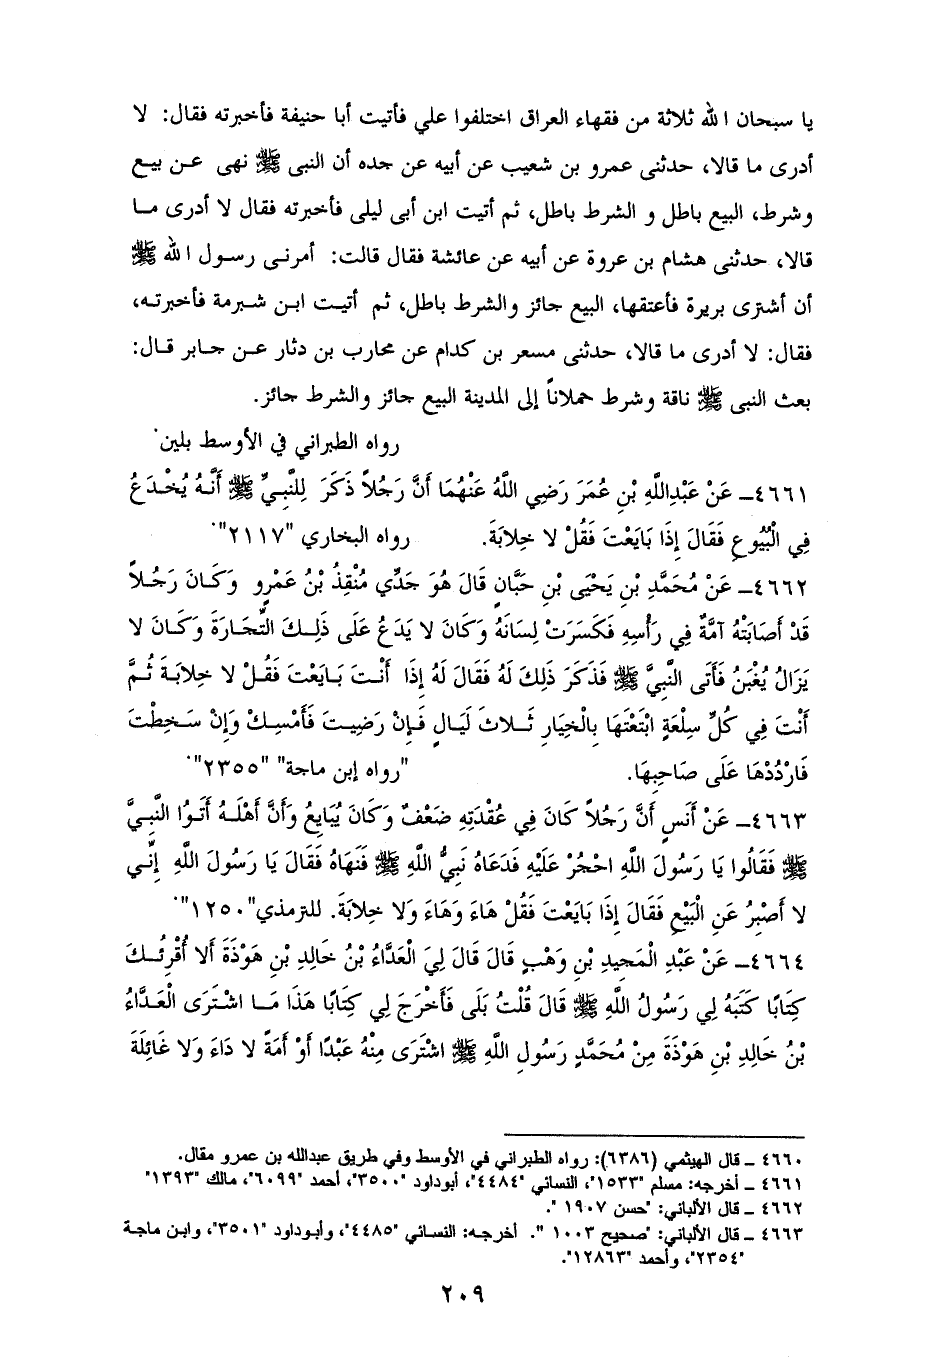 يا سبحان الله ثلاثة من فقهاء العراق اختلفوا علي فأتيت أبا حنيفة فأخبرته فقال: لا
أدرى ما قالا، حدثنى عمرو بن شعيب عن أبيه عن جده أن النبى ﷺ نهى عن بيع
وشرط، البيع باطل و الشرط باطل، ثم أتيت ابن أبى ليلى فأخبرته فقال لا أدرى ما
قالا، حدثنى هشام بن عروة عن أبيه عن عائشة فقال قالت: أمرنى رسول الله ﷺ
أن أشترى بريرة فأعتقها، البيع جائز والشرط باطل، ثم أتيت ابن شبرمة فأخبرته،
فقال: لا أدرى ما قالا، حدثنى مسعر بن كدام عن محارب بن دثار عن جابر قال:
بعث النبى ﷺ ناقة وشرط حملاناً إلى المدينة البيع جائز والشرط جائز.
رواه الطبراني في الأوسط بلين.
٤٦٦١ــ عَنْ عَبْدِاللَّهِ بْنِ عُمَرَ رَضِي اللَّهُ عَنْهُمَا أَنَّ رَجُلاً ذَكَرَ لِلنَّبِيِّ ﷺ أَنَّهُ يُخْدَعُ
فِي الْبُيُوعِ فَقَالَ إِذَا بَايَعْتَ فَقُلْ لا خِلابَةَ. رواه البخاري "٢١١٧".
٤٦٦٢ــ عَنْ مُحَمَّدِ بْنِ يَحْيَى بْنِ حَبَّان قَالَ هُوَ جَدِّي مُنْقِذُ بْنُ عَمْرٍو وَكَانَ رَجُلاً
قَدْ أَصَابَتْهُ آمَّةٌ فِي رَأْسِهِ فَكَسَرَتْ لِسَانَهُ وَكَانَ لا يَدَعُ عَلَى ذَلِكَ التِّجَارَةَ وَكَانَ لا
يَزَالُ يُغْبَنُ فَأَتَى النَّبِيَّ ﷺ فَذَكَرَ ذَلِكَ لَهُ فَقَالَ لَهُ إِذَا أَنْتَ بَايَعْتَ فَقُلْ لا خِلابَةَ ثُمَّ
أَنْتَ فِي كُلِّ سِلْعَةٍ ابْتَعْتَهَا بِالْخِيَارِ ثَلاثَ لَيَالٍ فَإِنْ رَضِيتَ فَأَمْسِكْ وَإِنْ سَخِطْتَ
فَارْدُدْهَا عَلَى صَاحِبِهَا. "رواه إبن ماجة" "٢٣٥٥".
٤٦٦٣ــ عَنْ أَنَسٍ أَنَّ رَجُلاً كَانَ فِي عُقْدَتِهِ ضَعْفٌ وَكَانَ يُبَايِعُ وَأَنَّ أَهْلَهُ أَتَوُا النَّبِيَّ
ﷺ فَقَالُوا يَا رَسُولَ اللَّهِ احْجُرْ عَلَيْهِ فَدَعَاهُ نَبِيُّ اللَّهِ ﷺ فَنَهَاهُ فَقَالَ يَا رَسُولَ اللَّهِ إِنِّي
لا أَصْبِرُ عَنِ الْبَيْعِ فَقَالَ إِذَا بَايَعْتَ فَقُلْ هَاءَ وَهَاءَ وَلا خِلابَةَ. للترمذي"١٢٥٠".
٤٦٦٤ــ عَنْ عَبْدِ الْمَجِيدِ بْنِ وَهْبٍ قَالَ قَالَ لِيَ الْعَدَّاءُ بْنُ خَالِدِ بْنِ هَوْذَةَ أَلا أُقْرِئُكَ
كِتَابًا كَتَبَهُ لِي رَسُولُ اللَّهِ ﷺ قَالَ قُلْتُ بَلَى فَأَخْرَجَ لِي كِتَابًا هَذَا مَا اشْتَرَى الْعَدَّاءُ
بْنُ خَالِدِ بْنِ هَوْذَةَ مِنْ مُحَمَّدٍ رَسُولِ اللَّهِ ﷺ اشْتَرَى مِنْهُ عَبْدًا أَوْ أَمَةً لا دَاءَ وَلا غَائِلَةَ
٤٦٦٠ ــ قال الهيثمي (٦٣٨٦): رواه الطبراني في الأوسط وفي طريق عبدالله بن عمرو مقال.
٤٦٦١ ــ أخرجه: مسلم "١٥٣٣"، النسائي "٤٤٨٤"، أبوداود "٣٥٠٠"، أحمد "٦٠٩٩"، مالك "١٣٩٣"
٤٦٦٢ ــ قال الألباني: "حسن ١٩٠٧ ".
٤٦٦٣ ــ قال الألباني: "صحيح ١٠٠٣ ". أخرجه: النسائي "٤٤٨٥"، وأبوداود "٣٥٠١"، وابن ماجة
"٢٣٥٤"، وأحمد "١٢٨٦٣".
٢٠٩